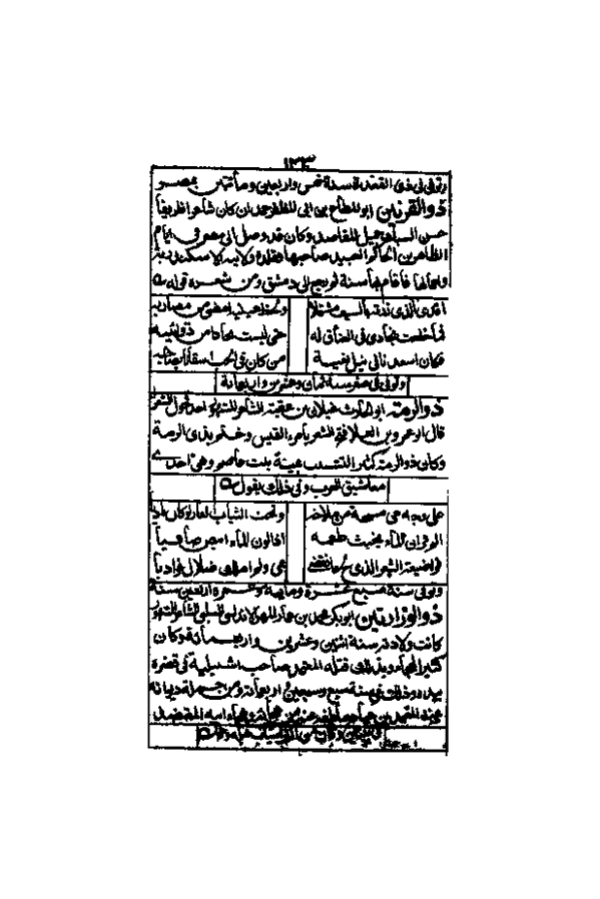 ١٢٣
وتوفى فى ذى القعدة سنة خمس واربعين ومأتين بمصر
ذوالقرنين ابوالمطاع بن ابى المظفر حمدان كان شاعرا ظريفاً
حسن السبك جميل المقاصد وكان قد وصل الى مصر فى ايام
الظاهر بن الحاكم العبيدى صاحبها فقلده ولاية الاسكندرية
واعمالها فاقام بها سنة ثم رجع الى دمشق ومن شعره قوله
افدى الذى زرته بالسيف مشتملا
ولحظ عينيه امضى من مضاربه
فما خلعت نجادى فى العناق له
حتى لبست نجادا من ذوائبه
فكان اسعدنا فى نيل بغيته
من كان فى الحب اشقانا بصاحبه
وتوفى فى صفر سنة ثمان وعشرين واربعمائة
ذوالرمة ابوالحارث غيلان بن عقبة الشاعر المشهور احد فحول الشعراء
قال ابوعمرو بن العلا فتح الشعر بامرء القيس وختم بذى الرمة
وكان ذوالرمة كثير التشبب بمية بنت عاصم وهى احدى
معاشيق العرب وفى ذلك يقول
على وجه مى مسحة من ملاحة
وتحت الثياب العار لو كان باديا
الم تر ان الماء يخبث طعمه
اذا لون الماء ابيض صافيا
فواضيعة الشعر الذى لج فانقضى
بمى ولم املك ضلال فؤاديا
وتوفى سنة سبع عشرة ومايه وعمره اربعين سنة
ذوالوزارتين ابوبكر محمد بن عمار المهرى الاندلسى الشلبى الشاعر المشهور
كانت ولادته سنة اثنين وعشرين واربعمائة وكان
كثير الهجاء وبذلك قتله المعتمد صاحب اشبيلية فى قصره
بيده وذلك فى سنة سبع وسبعين واربعمائة ومن جملة